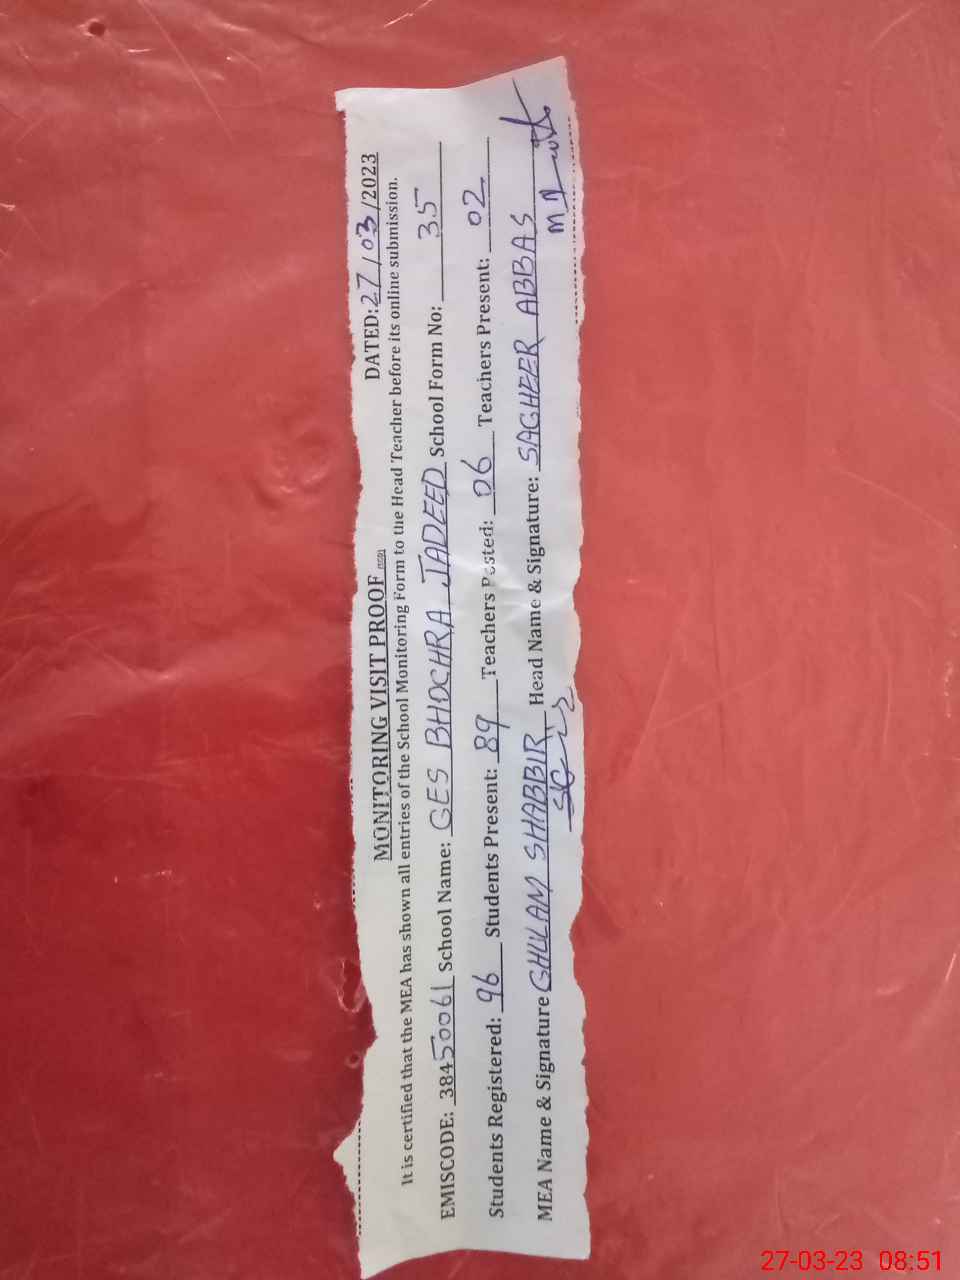 MONITORING VISIT PROOF
DATED:27/03/2023
It is certified that the MEA has shown all entries of the School Monitoring Form to the Head Teacher before its online submission.
EMISCODE: 38450061 School Name: GES BHOCHRA JADEED School Form No: 35
Students Registered: 96 Students Present: 89 Teachers Posted: 06 Teachers Present: 02
MEA Name & Signature GHULAM SHABBIR Head Name & Signature: SAGHEER ABBAS
27-03-23 08:51